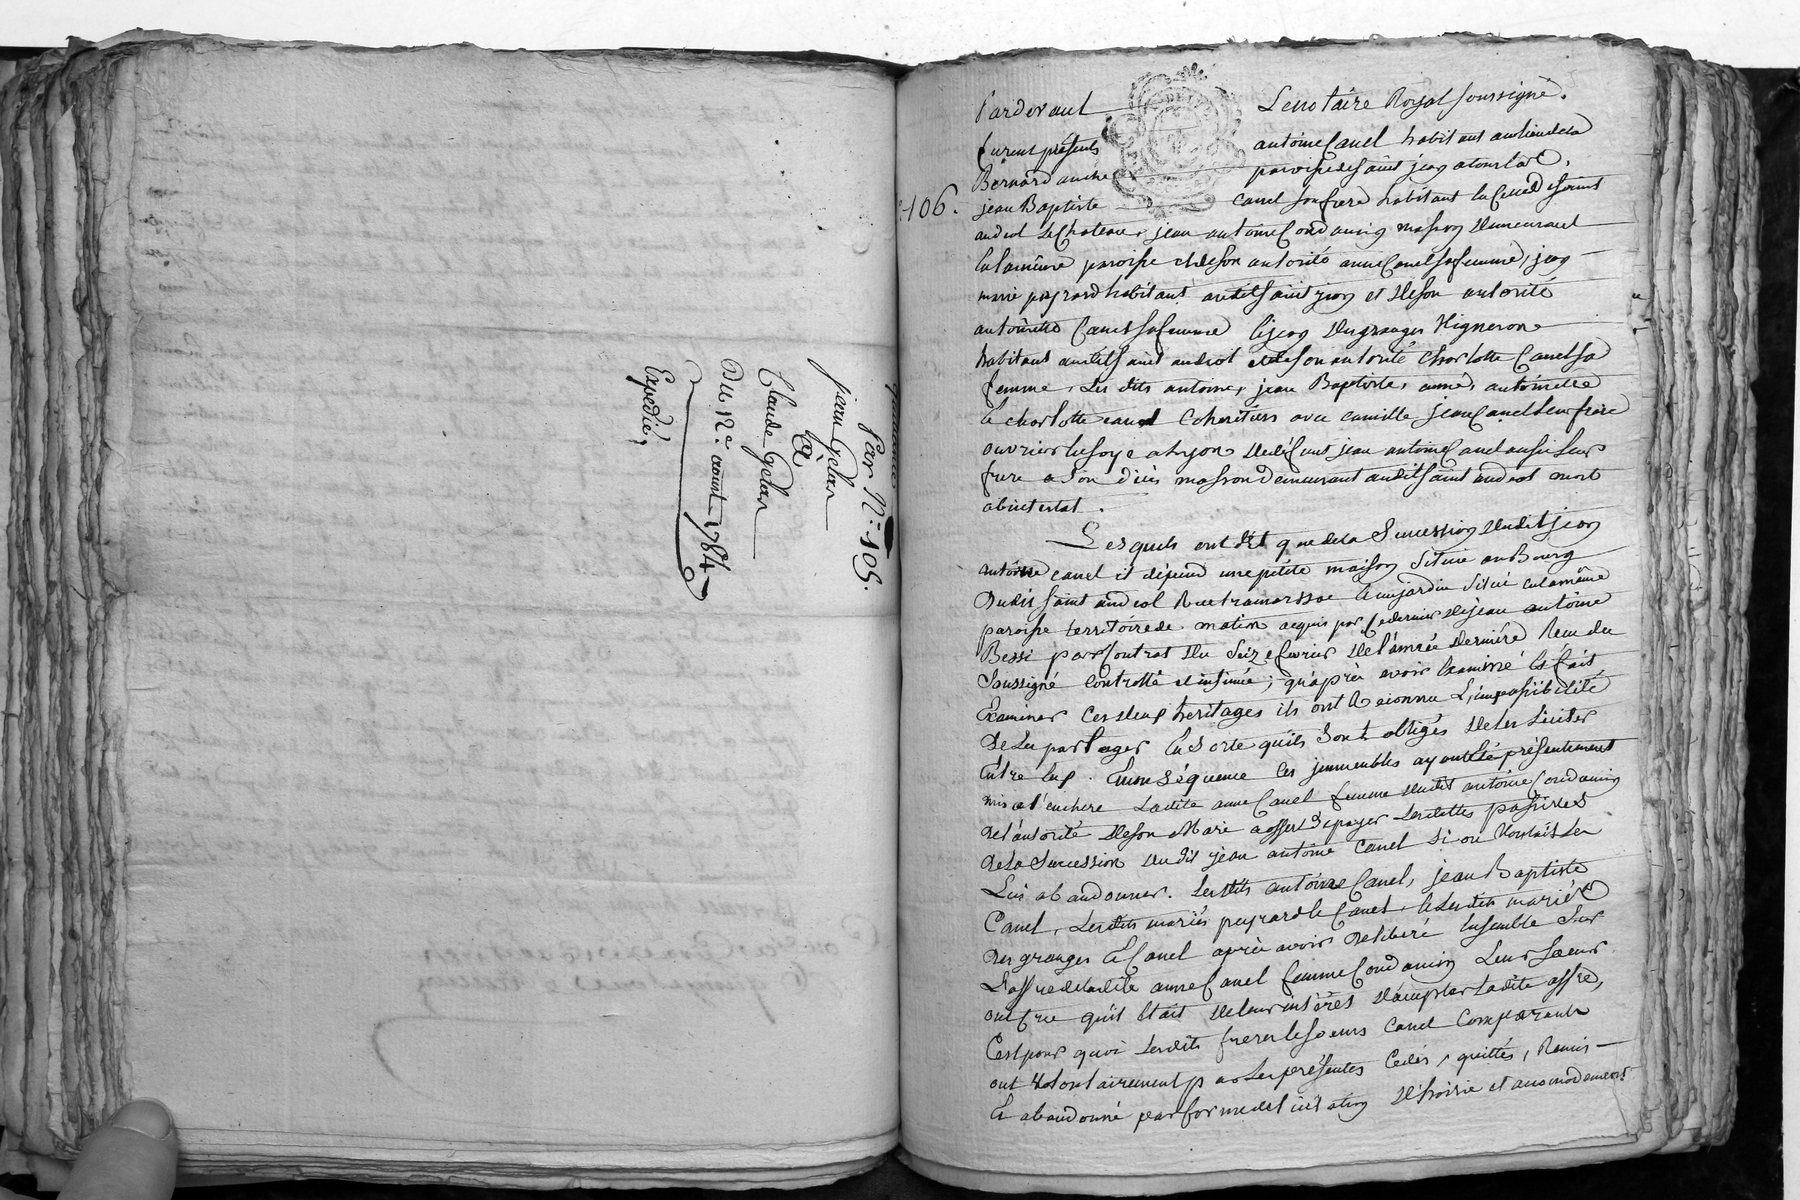 quittance
par N.° 105.
jean Gelas
à
Claude Gelas
Du 12.e aoust 1784
Expedié,
106.
Pardevant Le notaire Royal soussigné.
furent présents antoine Canel habitant au lieu de la
Bernardauche paroisse de saint jean a tourlas,
jean Baptiste canel son frere habitant en celle de saint
andeol le chateau, jean antoine Condamin masson demeurant
en la même paroisse et de son autorité anne Canel sa femme, jean
marie peyrard habitant audit saint jean et de son autorité
antoinette Canel sa femme & jean desgranges Vigneron
habitant audit saint andeol et de son autorité charlotte Canel sa
femme, Les dits antoine, jean Baptiste, anne, antoinette
& charlotte canel Coheritiers avec camille jean Canel leur frere
ouvrier en soye a Lyon de defunt jean antoine Canel aussi leur
frere a son décès masson demeurant audit saint andeol mort
abintestat.
Lesquels ont dit que de la Succession dudit jean
antoine canel il dépend une petite maison située au Bourg
dudit saint andeol Rue tramassac & un jardin situé en la même
paroisse territoire de mation acquis par ce dernier de jean antoine
Bessi par Contrat du seize fevrier de l'année derniére Recu du
soussigné Controllé et insinué; qu'après avoir Examiné et fait
Examiner ces deux heritages ils ont Reconnu L'impossibilité
de les partager En sorte qu'ils sont obligés de les Liciter
Entre Eux. En conséquence les immeubles ayant été présentement
mis a l'enchere Ladite anne Canel femme dudit antoine Condamin
de l'autorité de son Mari a offert de payer les dettes passives
de la Succession dudit jean antoine Canel si on Vouloit les
Lui abandonner. Lesdits antoine Canel, jean Baptiste
Canel, Lesdits mariés peyrard & Canel, & lesdits mariés
desgranges & Canel après avoir deliberé Ensemble sur
L'offre de ladite anne Canel femme Condamin Leur Soeur
ont cru qu'il Etait de leur intérêt d'accepter Ladite offre,
C'est pour quoi Lesdits freres & soeurs Canel Comparants
ont Volontairement par les présentes Cedés, quittés, Remis
& abandonné par forme de licitation d'hoirie et accomodement